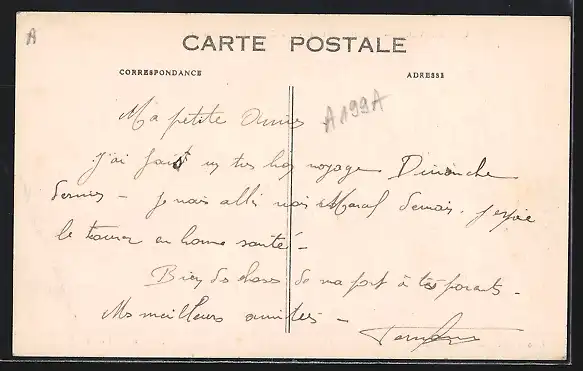 A
CARTE POSTALE
CORRESPONDANCE
ADRESSE
A199A
Ma petite Amie
J'ai fait un très bon voyage Dimanche
dernier - Je vais aller voir Maral demain. J'espère
le trouver en bonne santé -
Bien des choses de ma part à tes parents -
Mes meilleures amitiés -